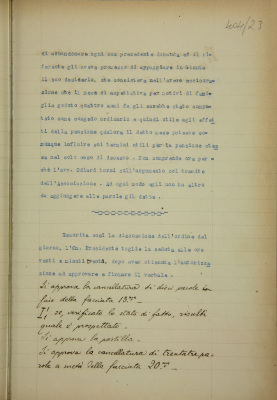 404/23
di abbandonare ogni sua precedente domanda ed il ri-
cercato gli aveva promesso di appoggiare in Giunta
il suo desiderio, che consisteva nell'avere assicura-
zione che il mese di aspettativa per motivi di fami-
glia goduto quattro anni fa gli sarebbe stato compu-
tato come congedo ordinario e quindi utile agli effet-
ti della pensione qualora il detto mese potesse co-
munque influire sui termini utili per la pensione stes-
sa nel solo caso di decesso. Non comprende ora per-
chè l'avv. Odiari torni sull'argomento col tramite
dell'Associazione. Ad ogni modo egli non ha altro
da aggiungere alle parole già dette.
Esaurita così la discussione dell'ordine del
giorno, l'On. Presidente toglie la seduta alle ore
venti e minuti trenta, dopo aver ottenuta l'autorizza-
zione ad approvare e firmare il verbale.
Si approva la cancellatura di dieci parole in
fine della facciata 18ª.
si approva la postilla.
Si approva la cancellatura di trentatre pa-
role a metà della facciata 20ª.